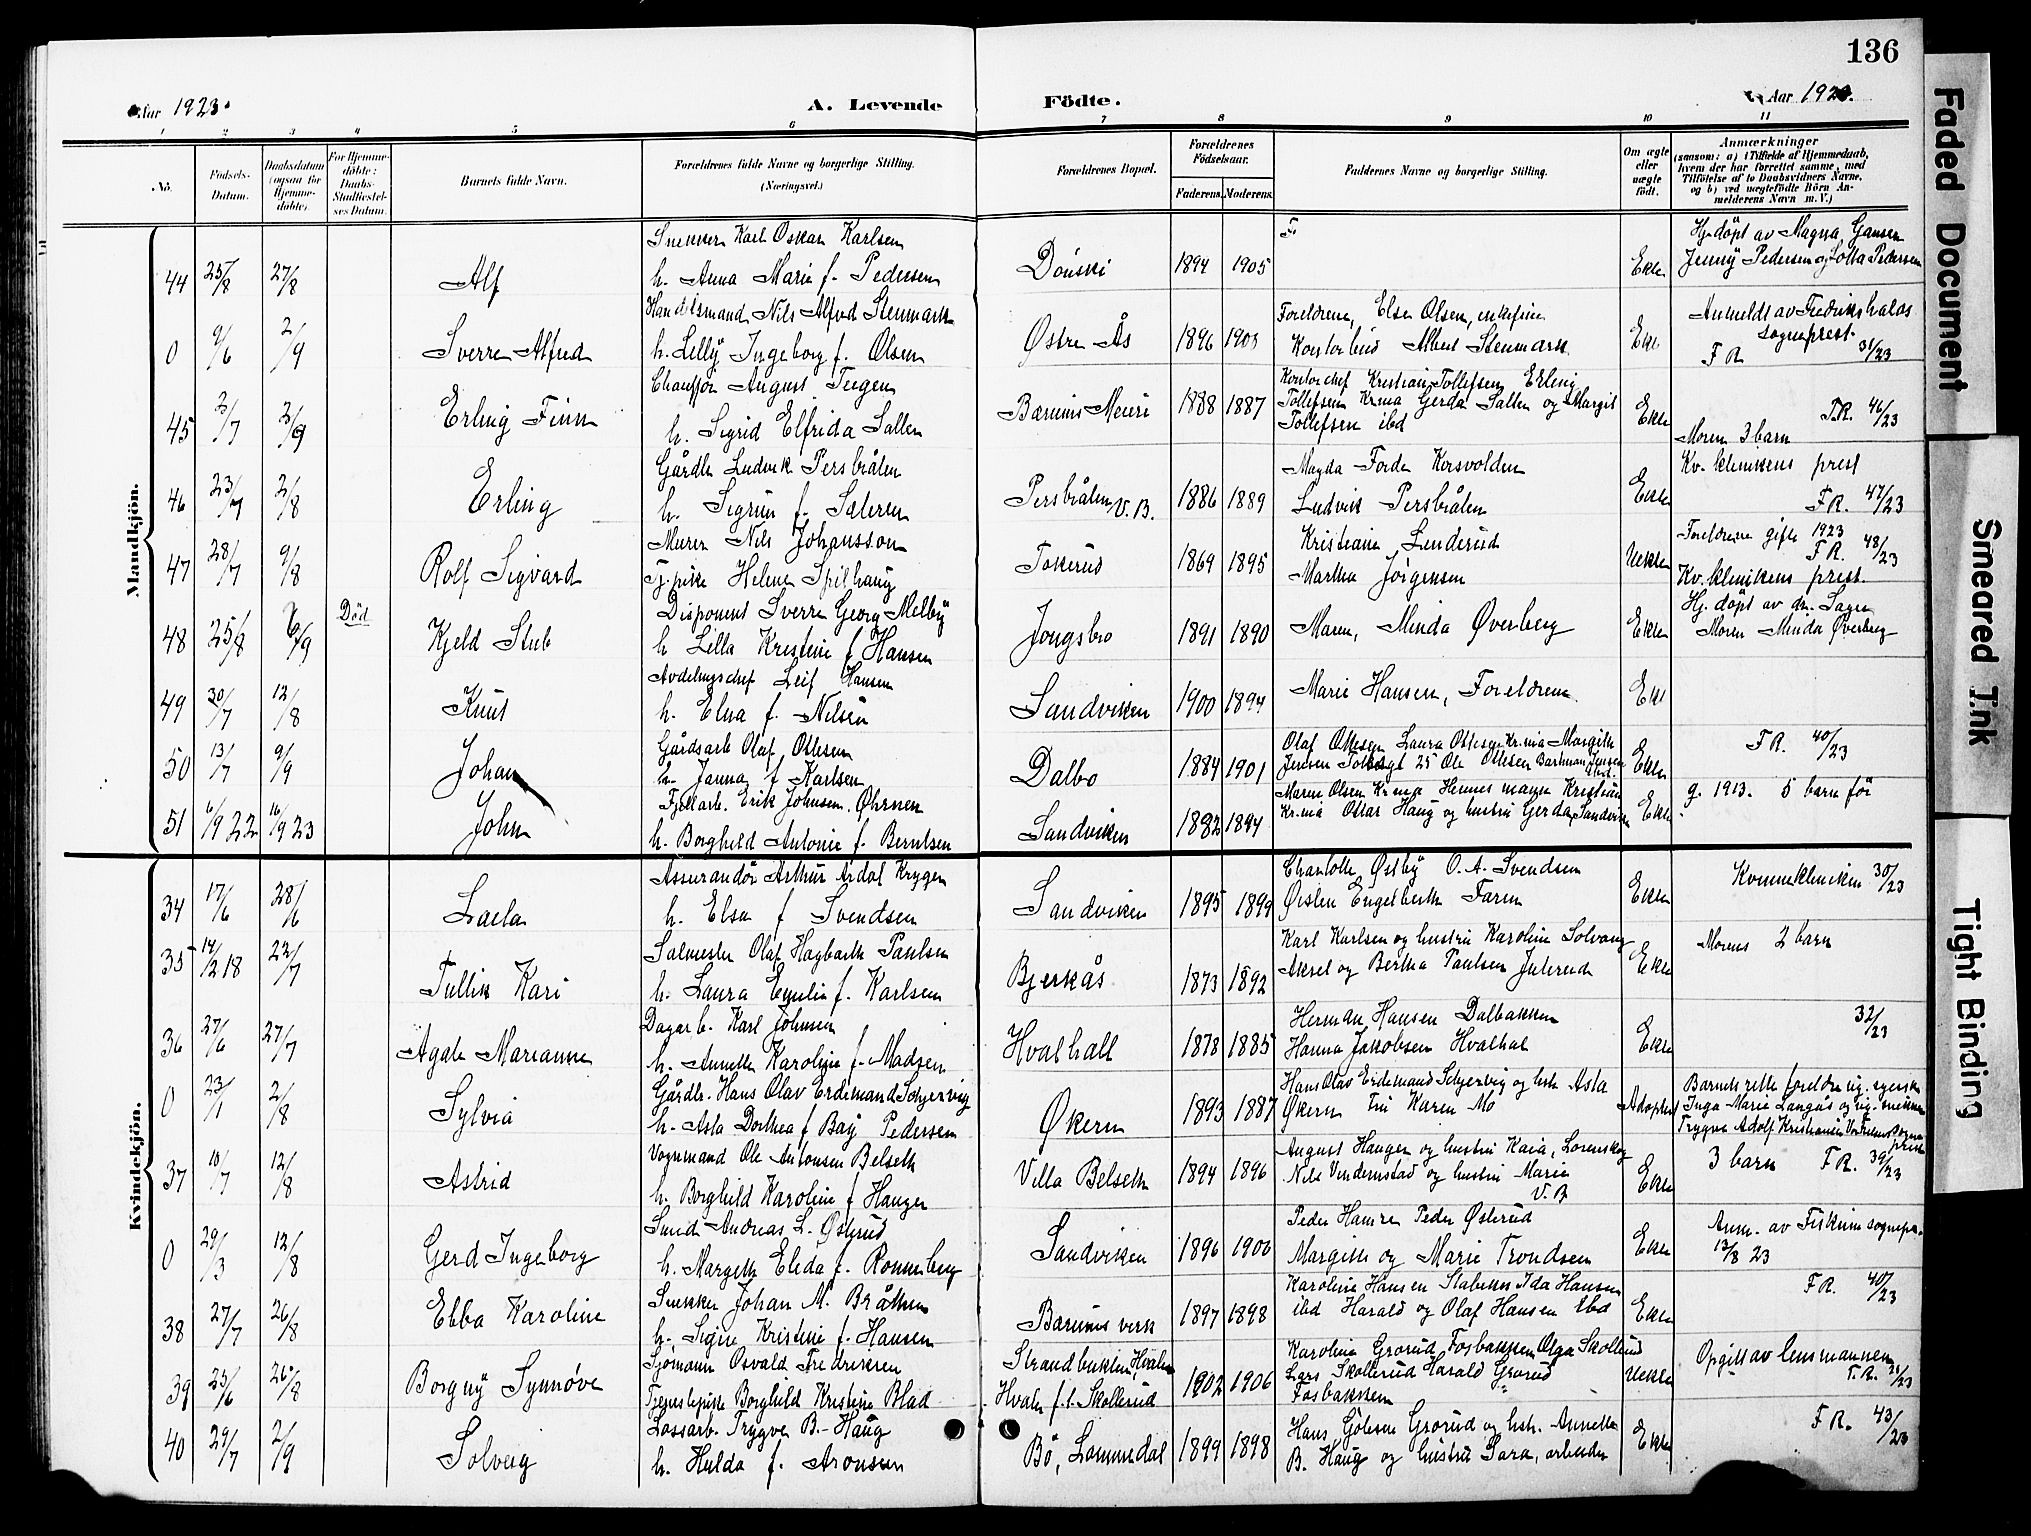 136
Aar 1923.
A. Levende
Födte.
Aar 1923.
1 2 3 4 5 6 7 8 9 10 11
No.
Födsels-Datum.
Daabsdatum (ogsaa for Hjemme-døbte).
For Hjemme-døbte: Daabs-Stadfæstel-ses Datum.
Barnets fulde Navn.
Forældrenes fulde Navne og borgerlige Stilling. (Næringsvei.)
Forældrenes Bopæl.
Forældrenes Fødselsaar.
Faderens. Moderens.
Faddernes Navne og borgerlige Stilling.
Om ægte eller uægte født.
Anmærkninger
(saasom: a) i Tilfælde af Hjemmedaab, hvem der har forrettet samme, med Tilføielse af to Daabsvidners Navne, og b) ved uægtefødte Börn An-melderens Navn m. V.)
Mandkjön.
44 25/8 27/8 Alf
Snekker Karl Oskar Karlsen
h. Anna Marie f. Pedersen
Dønski 1894 1905 Ekte
Hj. døpt av Magna Hansen
Jenny Pedersen og Lotta Pedersen
0 9/6 2/9 Sverre Alfred
Handelsmand Nils Alfred Stenmark
h. Lilly Ingeborg f. Olsen
Østre Ås 1896 1903
Foreldrene, Else Olsen, enkefrue
Kontorbud Albert Stenmark
Ekte
Anmeldt av Fredrikshalds
sogneprest
F R 31/23
45 2/7 2/9 Erling Finn
Chauffør August Teigen
h. Sigrid Elfrida Sallen
Bærums Meieri 1888 1887
Kontorchef Kristian Tollefsen Erling
Tollefsen Kr.nia Gerda Sallen og Margit
Tollefsen ibd
Ekte
F.R. 46/23
Moren 3 barn
46 23/7 2/8 Erling
Gårdbr Ludvik Persbråten
h. Sigrun f. Sæteren
Persbråten V.B. 1886 1889
Magda Forde Korsvolden
Ludvik Persbråten
Ekte
Kv. klinikens prest
F R. 47/23
47 28/7 9/8 Rolf Sigvard
Murer Nils Johansson
Tj. pike Helene Spilhaug
Tokerud 1869 1895
Kristiane Lunderud
Martha Jörgensen
Uekte
Foreldrene gifte 1923
F R. 48/23
Kv. klinikens prest.
48 25/8 6/9 Død Kjeld Stub
Disponent Sverre Georg Melby
h Lilla Kristine f Hansen
Jongsbro 1891 1890
Maren, Minda Øverberg
Ekte
Hj. døpt av dr. Sagen
Maren Minda Øverberg
49 30/7 12/8 Knut
Avdelingschef Leif Hansen
h. Elna f. Nilsen
Sandviken 1900 1894
Marie Hansen, Foreldrene
Ekte
50 13/7 9/9 Johan
Gårdsarb Olaf Ottesen
h. Janna f Karlsen
Dalbo 1884 1901
Olaf Ottesen Laura Ottesen Kr.nia Margith
Jensen Ole Ottesen
Ekte
F R. 40/23
51 6/9 22 16/9 23 John
Erik Johnsen Øhrnen
h. Borghild Antonie f. Berntsen
Sandviken 1882 1894
Maren Olsen Kr.nia Kristian
Kr.nia Oskar Haug og hustru Gerda, Sandviken
Ekte
g. 1913. 5 barn før
Kvindekjön.
34 17/6 28/6 Laela
Assurandør Arthur Ardal Krygen
h. Elsa f Svendsen
Sandviken 1895 1899
Charlotte Østby O. A. Svendsen
Øislen Engelbreth Faren
Ekte
Kvinnekliniken 30/23
35 14/2 18 22/7 Tullik Kari
Salmester Olaf Hagbarth Paulsen
h. Laura Emilie f. Karlsen
Bjerkås 1873 1892
Karl Karlsen og hustru Karoline Solvang
Aksel og Bertha Paulsen Julerud
Ekte
Morens 2 barn
36 27/6 27/7 Agate Marianne
Dagarb. Karl Johnsen
h. Annette Karoline f. Madsen
Hvalhall 1878 1885
Herman Hansen Dalbakken
Hanna Jakobsen Hvalhal
Ekte
32/23
0 23/1 2/8 Sylvia
Gårdbr. Hans Olav Erdemand Schjervig
h. Asta Dorthea f Bay Pedersen
Økern 1893 1887
Hans Olav Erdemand Schjervig og hstr. Asta
Økern Fru Karen Mo
Adoptert
Barnets rette foreldre
Inga Marie Langås og
Trygve Adolf Kristiansen
37 10/7 12/8 Astrid
Vognmand Ole Antonsen Belseth
h. Borghild Karoline f Haugen
Villa Belseth 1894 1896
August Haugen og hustru Kaia, Lørenskog
Nils Vendernstad og hustru Marie
V. B
Ekte
3 barn F R. 39/23
0 29/3 12/8 Gerd Ingeborg
Andreas L. Østerud
h. Margith Elida f. Ronneberg
Sandviken 1896 1900
Peder Hamre Peder Østerud
Margith og Marie Trondsen
Ekte
Anm. av Fiskum sognepr.
13/8 23
38 27/7 26/8 Ebba Karoline
Snekker Johan M. Bråthen
h. Signe Kristine f. Hansen
Bærums verk 1897 1898
Karoline Hansen Stabekk Ida Hansen
ibd Harald og Olaf Hansen ibd
Ekte
F R. 40/23
39 25/6 26/8 Borgny Synnøve
Sjømann Osvald Fredriksen
Tjenestepike Borghild Kristine Blad
Strandbukten, Hvalen
Hvalen f. t. Skollerud 1902 1906
Karoline Grorud Fosbakken Olga Skollerud
Lars Skollerud Harald Grorud
Fosbakken
Uekte
Opgitt av lensmannen
F. R. 21/23
40 29/7 2/9 Solveig
Lossarb. Trygve B. Haug
h. Hulda f. Aronsen
Bö, Lommedal 1899 1898
Hans Gjølsen Grorud og hstr. Annette
B. Haug og hustru Sara, arbeider
Ekte
F R. 43/23
Faded Document
Smeared Ink
Tight Binding